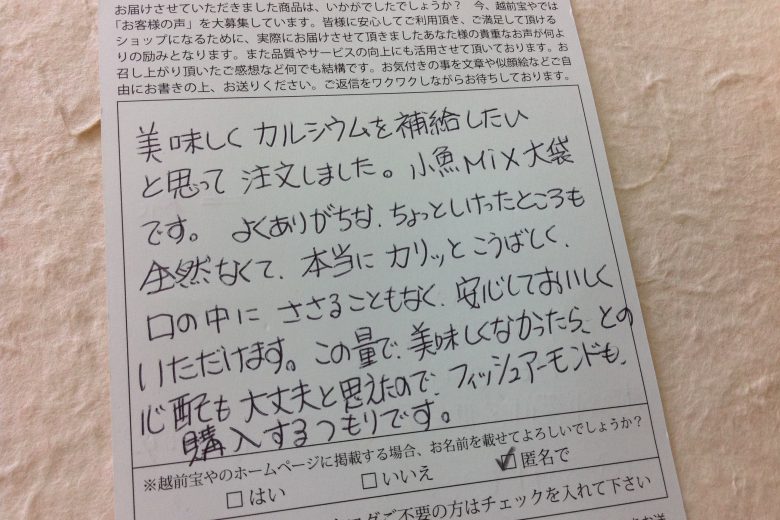 お届けさせていただきました商品は、いかがでしたでしょうか? 今、越前宝やでは
「お客様の声」を大募集しています。皆様に安心してご利用頂き、ご満足して頂ける
ショップになるために、実際にお届けさせて頂きましたあなた様の貴重なお声が何よ
りの励みとなります。また品質やサービスの向上にも活用させて頂いております。お
召し上がり頂いたご感想など何でも結構です。お気付きの事を文章や似顔絵などご自
由にお書きの上、お送りください。ご返信をワクワクしながらお待ちしております。
美味しく カルシウムを補給したい
と思って 注文しました。小魚Mix大袋
です。よくありがちな、ちょっとしけったところも
全然なくて、本当に カリッと こうばしく、
口の中に ささることもなく、安心しておいしく
いただけます。この量で、美味しくなかったら、との
心配も 大丈夫と思えたので、フィッシュアーモンドも、
購入するつもりです。
※越前宝やのホームページに掲載する場合、お名前を載せてよろしいでしょうか?
□はい □いいえ ☑匿名で
ご不要の方はチェックを入れて下さい